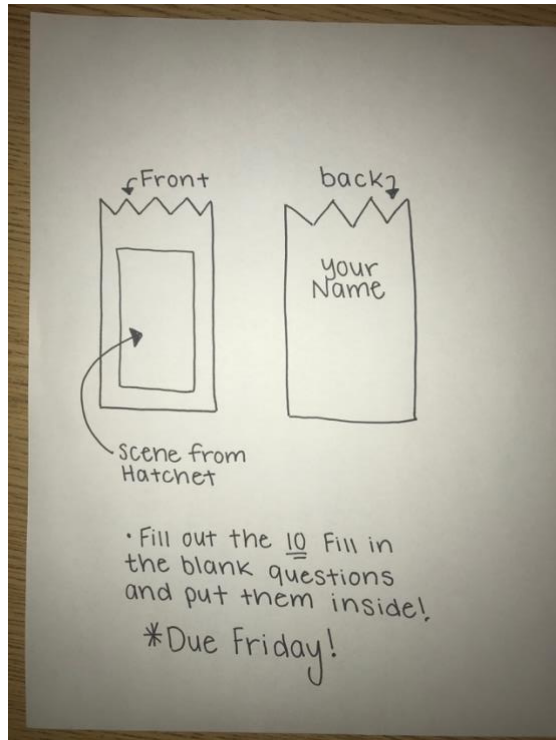 Front
back
your
Name
Scene from
Hatchet
• Fill out the 10 Fill in
the blank questions
and put them inside!
*Due Friday!